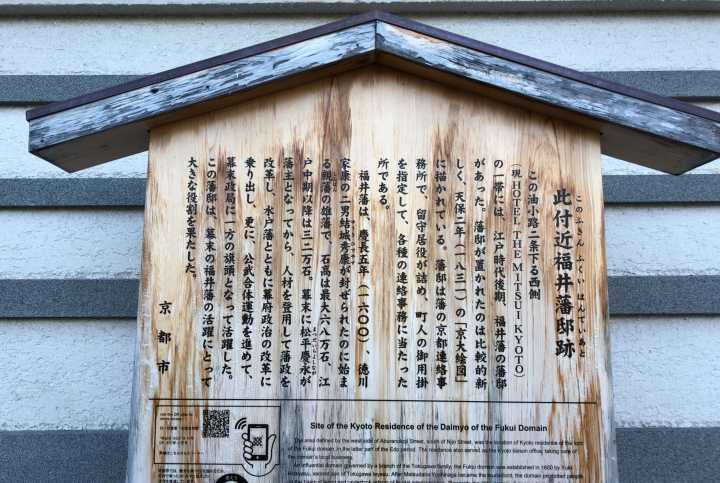 このふきん ふくい はんていあと
此付近福井藩邸跡
この油小路二条下る西側
(現 HOTEL THE MITSUI KYOTO)
の一帯には、江戸時代後期、福井藩の藩邸
があった。藩邸が置かれたのは比較的新
しく、天保二年（一八三一）の「京大絵図」
に描かれている。藩邸は藩の京都連絡事
務所で、留守居役が詰め、町人の御用掛
を指定して、各種の連絡事務に当たった
所である。
福井藩は、慶長五年（一六〇〇）、徳川
家康の二男結城秀康が封ぜられたのに始ま
る親藩の雄藩で、石高は最大六八万石、江
戸中期以降は三二万石。幕末に松平慶永が
藩主となってから、人材を登用して藩政を
改革し、水戸藩とともに幕府政治の改革に
乗り出し、更に、公武合体運動を進めて、
幕末政局に一方の旗頭となって活躍した。
この藩邸は、幕末の福井藩の活躍にとって
大きな役割を果たした。
京都市
Site of the Kyoto Residence of the Daimyo of the Fukui Domain
The area defined by the west side of Aburanokoji Street, south of Nijo Street, was the location of Kyoto residence of the lord
of the Fukui domain in the latter part of the Edo period. The residence also served as the Kyoto liaison office, taking care of
the domain's local business.
An influential domain governed by a branch of the Tokugawa family, the Fukui domain was established in 1600 by Yuki
Hideyasu, second son of Tokugawa Ieyasu. After Matsudaira Yoshinaga became the